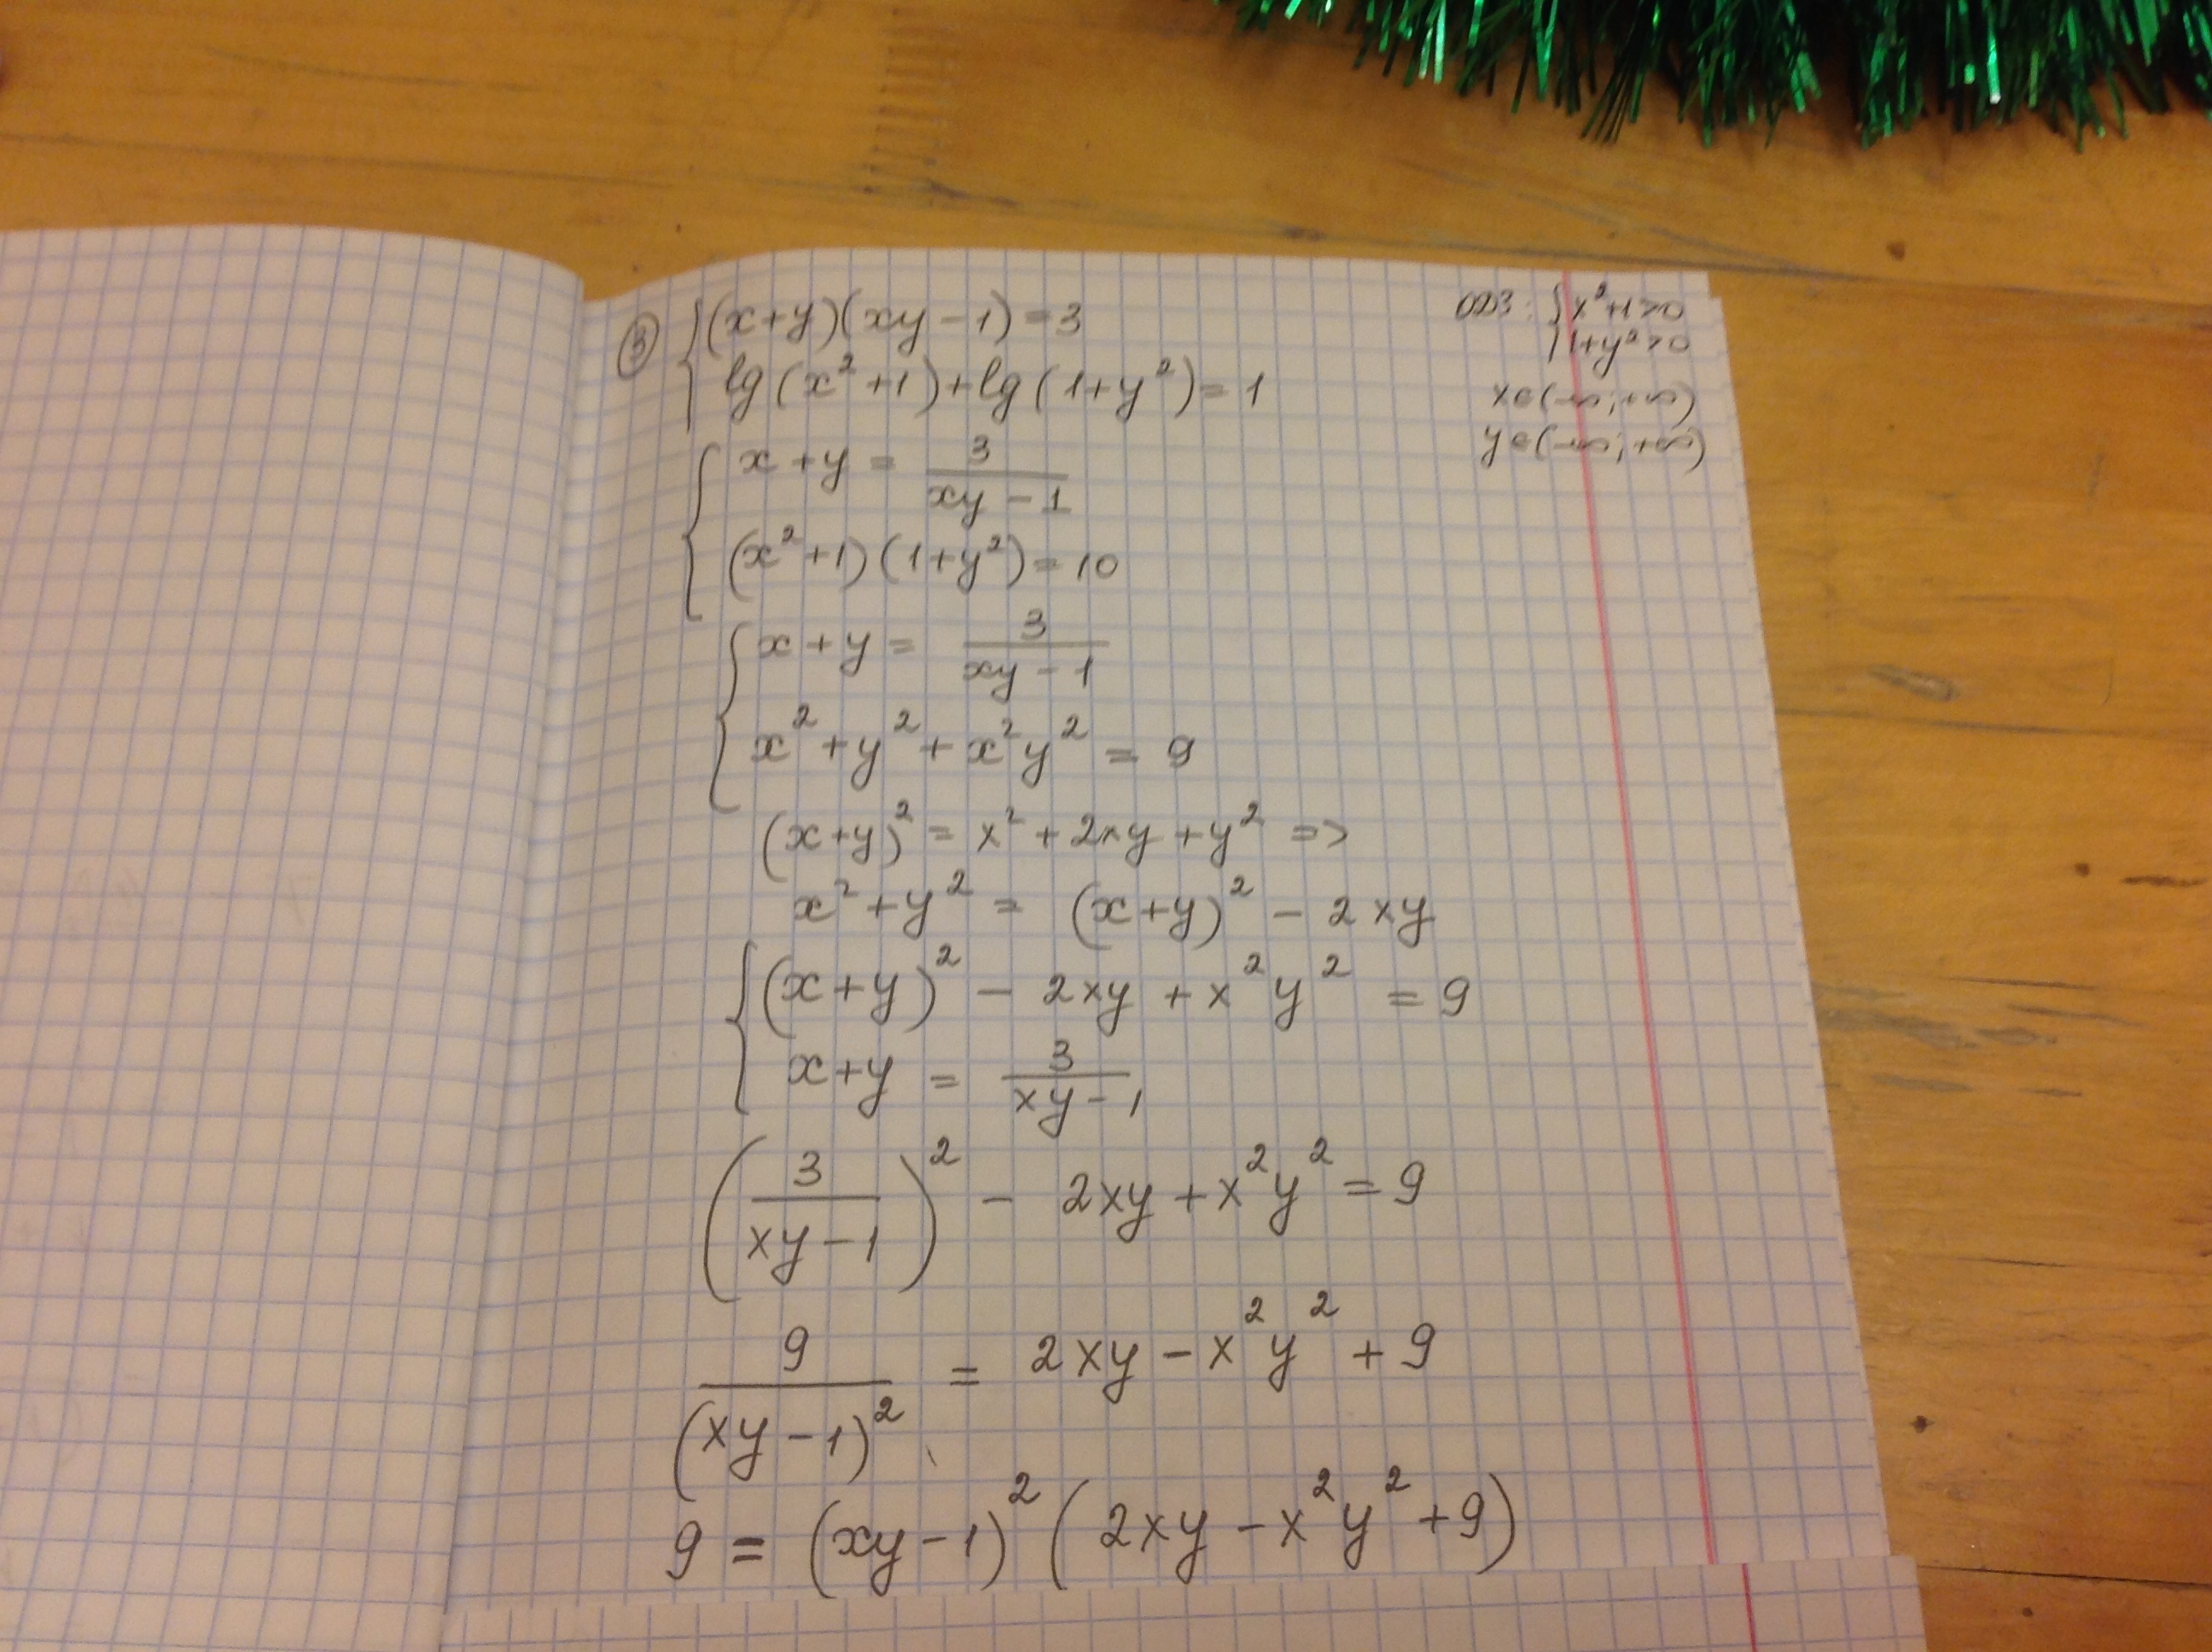 ③ { (x+y)(xy-1)=3
lg(x²+1)+lg(1+y²)=1
ОДЗ: { x²+1>0
1+y²>0
x∈(-∞;+∞)
y∈(-∞;+∞)
{ x+y = 3/(xy-1)
(x²+1)(1+y²)=10
{ x+y = 3/(xy-1)
x²+y²+x²y² = 9
(x+y)² = x²+2xy+y² =>
x²+y² = (x+y)² - 2xy
{ (x+y)² - 2xy + x²y² = 9
x+y = 3/(xy-1)
(3/(xy-1))² - 2xy + x²y² = 9
9/(xy-1)² = 2xy - x²y² + 9
9 = (xy-1)² (2xy - x²y² + 9)